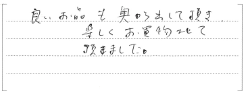 良いお品も奥から出して頂き、
楽しくお買物させて
頂きました。